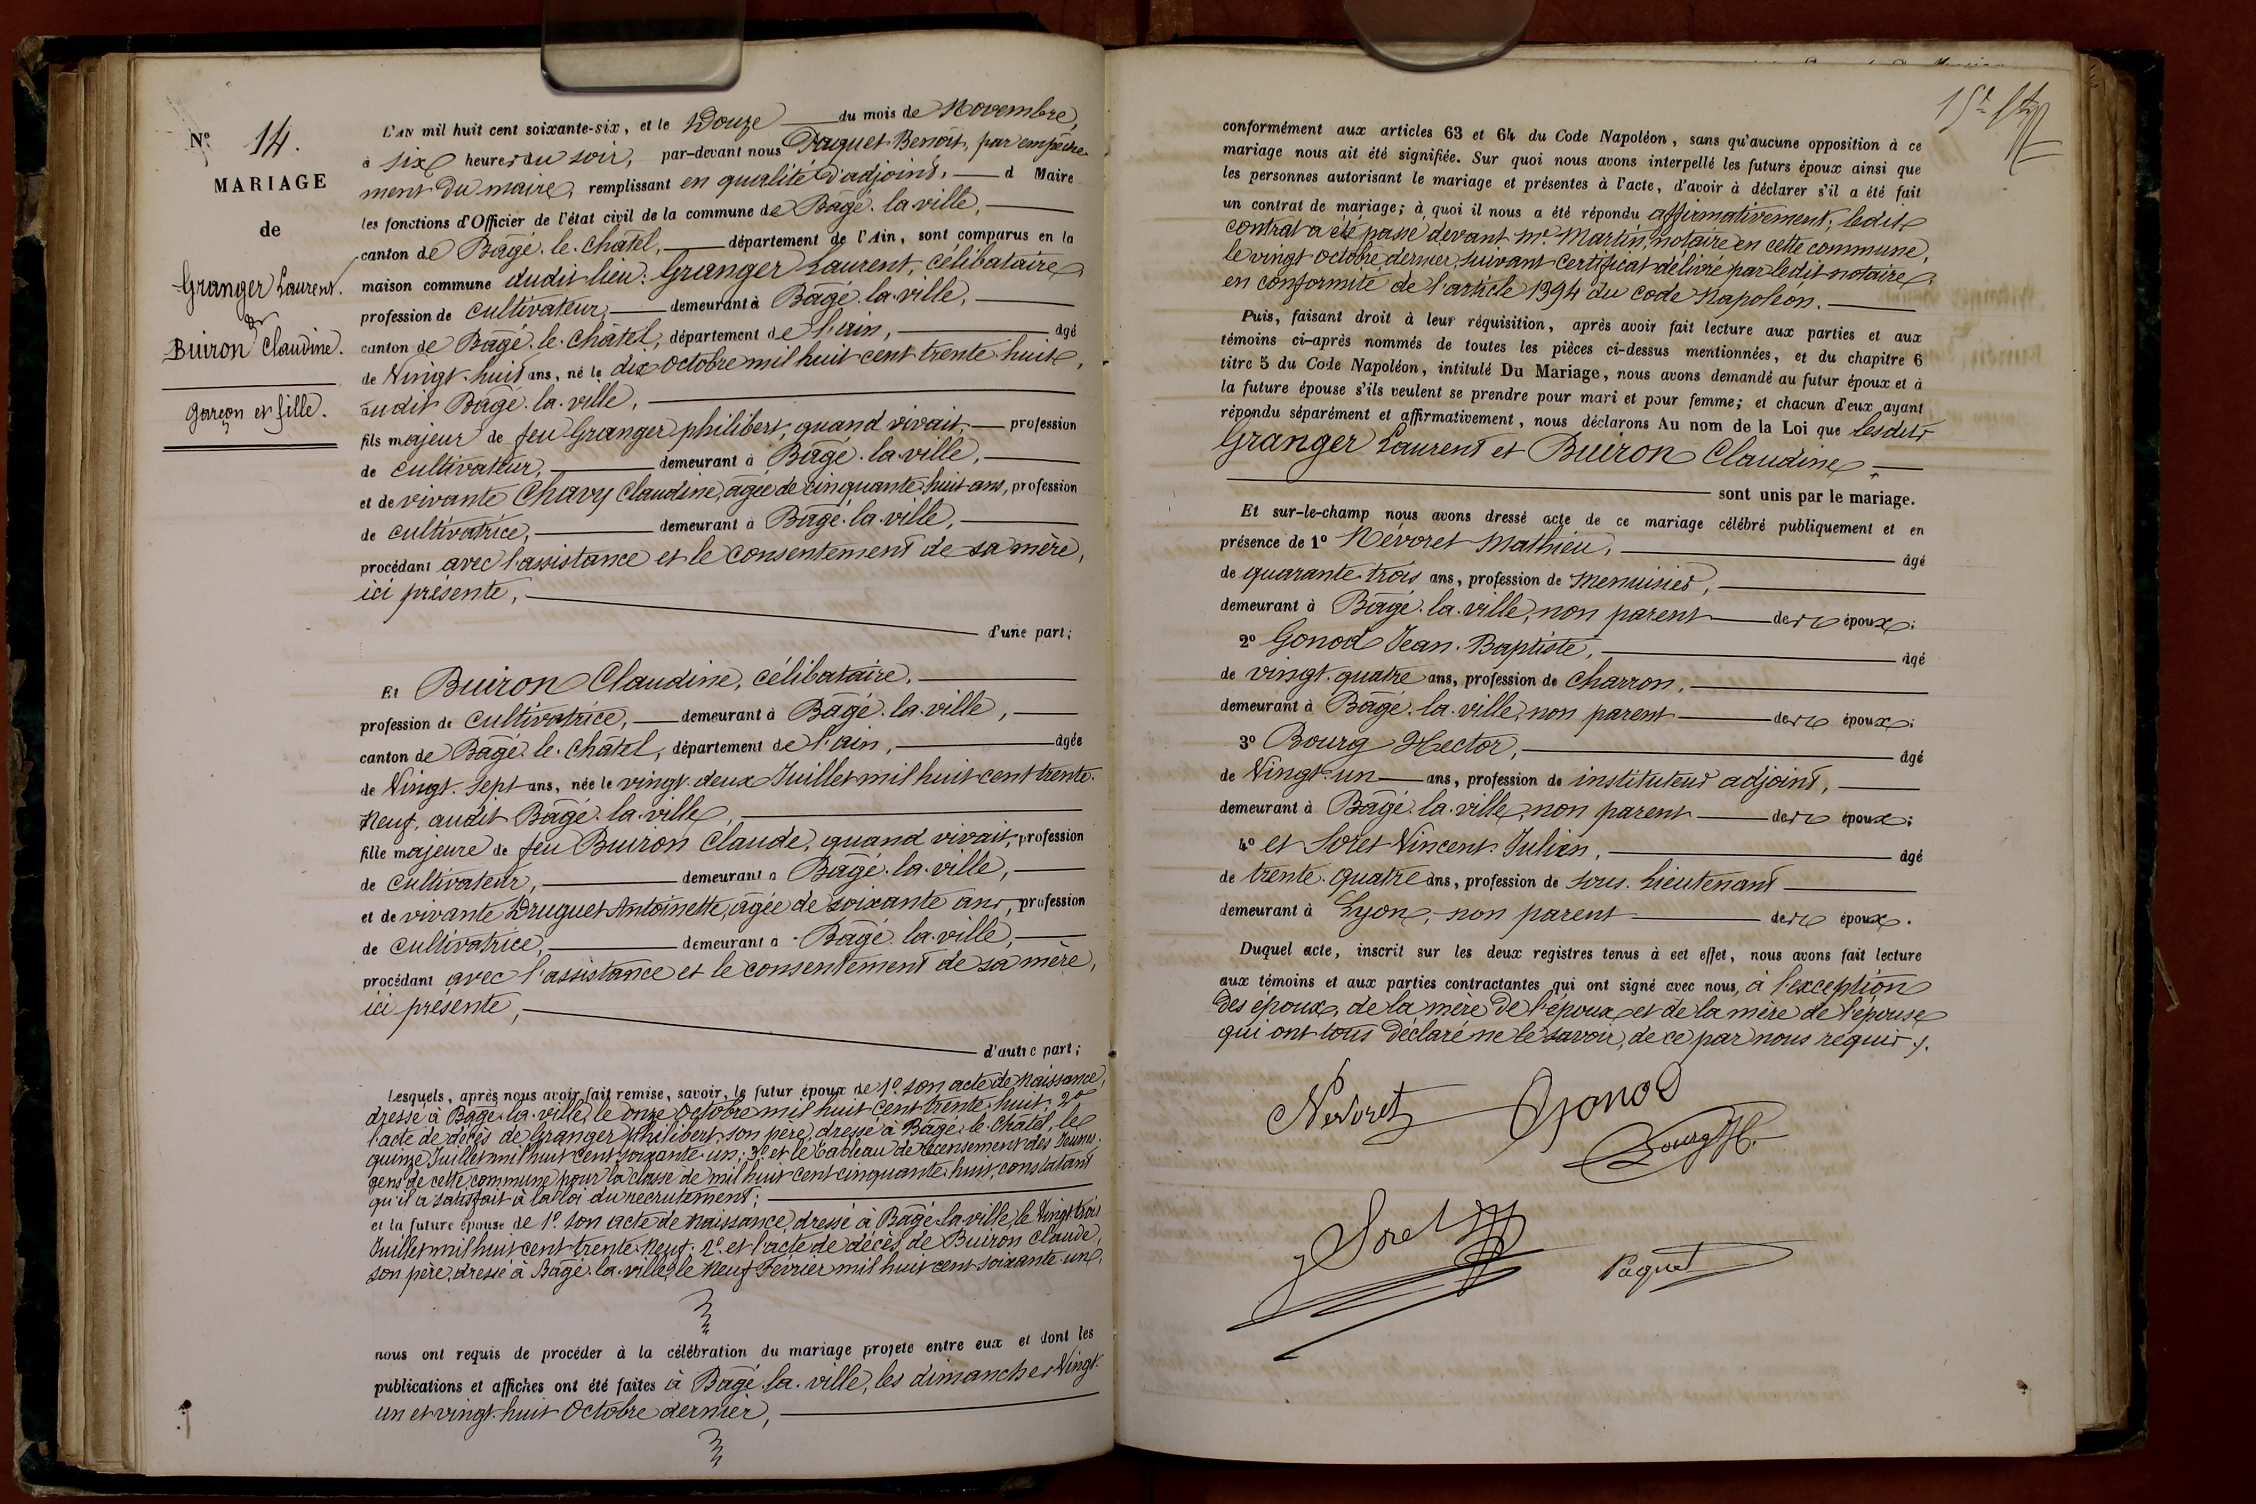 Nº 14.
MARIAGE
de
Granger Laurent.
&
Buiron Claudine.
Garçon et fille.
L'AN mil huit cent soixante-six, et le Douze du mois de Novembre,
à six heures du soir, par-devant nous Paquet Benoit, par empêche-
ment du maire, remplissant en qualité d'adjoint, d Maire
les fonctions d'Officier de l'état civil de la commune de Bâgé-la-ville,
canton de Bâgé-le-Châtel, département de l'Ain, sont comparus en la
maison commune dudit lieu: Granger Laurent, célibataire,
profession de cultivateur, demeurant à Bâgé-la-ville,
canton de Bâgé-le-Châtel, département de l'ain, âgé
de Vingt-huit ans, né le dix Octobre mil huit cent trente-huit,
audit Bâgé-la-ville,
fils majeur de feu Granger philibert, quand vivait, profession
de cultivateur, demeurant à Bâgé-la-ville,
et de vivante Chavy Claudine, âgée de cinquante-huit ans, profession
de cultivatrice, demeurant à Bâgé-la-ville,
procédant avec l'assistance et le consentement de sa mère,
ici présente,
d'une part;
Et Buiron Claudine, célibataire,
profession de cultivatrice, demeurant à Bâgé-la-ville,
canton de Bâgé-le-Châtel, département de l'ain, âgée
de Vingt-sept ans, née le vingt-deux Juillet mil huit cent trente-
Neuf, audit Bâgé-la-ville,
fille majeure de feu Buiron Claude, quand vivait, profession
de cultivateur, demeurant à Bâgé-la-ville,
et de vivante Druguet Antoinette, âgée de soixante ans, profession
de cultivatrice, demeurant à Bâgé-la-ville,
procédant avec l'assistance et le consentement de sa mère,
ici présente,
d'autre part;
Lesquels, après nous avoir fait remise, savoir, le futur époux de 1º son acte de Naissance,
dressé à Bâgé-la-ville, le onze Octobre mil huit cent trente-huit; 2º
l'acte de décès de Granger Philibert, son père, dressé à Bâgé-le-Châtel, le
quinze Juillet mil huit cent soixante-un; 3º et le tableau de recensement des Jeunes
gens de cette commune pour la classe de mil huit cent cinquante-huit, constatant
qu'il a satisfait à la loi du recrutement;
et la future épouse de 1º son acte de Naissance, dressé à Bâgé-la-ville, le Vingt-trois
Juillet mil huit cent trente-Neuf; 2º et l'acte de décès de Buiron Claude,
son père, dressé à Bâgé-la-ville, le Neuf Février mil huit cent soixante-un,
nous ont requis de procéder à la célébration du mariage projeté entre eux et dont les
publications et affiches ont été faites à Bâgé-la-ville, les dimanches Vingt-
un et vingt-huit Octobre dernier,
conformément aux articles 63 et 64 du Code Napoléon, sans qu'aucune opposition à ce
mariage nous ait été signifiée. Sur quoi nous avons interpellé les futurs époux ainsi que
les personnes autorisant le mariage et présentes à l'acte, d'avoir à déclarer s'il a été fait
un contrat de mariage; à quoi il nous a été répondu affirmativement; ledit
contrat a été passé devant Mr. Martin, notaire en cette commune,
le vingt Octobre dernier, suivant certificat délivré par ledit notaire,
en conformité de l'article 1394 du code Napoléon.
Puis, faisant droit à leur réquisition, après avoir fait lecture aux parties et aux
témoins ci-après nommés de toutes les pièces ci-dessus mentionnées, et du chapitre 6
titre 5 du Code Napoléon, intitulé Du Mariage, nous avons demandé au futur époux et à
la future épouse s'ils veulent se prendre pour mari et pour femme; et chacun d'eux ayant
répondu séparément et affirmativement, nous déclarons Au nom de la Loi que lesdits
Granger Laurent et Buiron Claudine
sont unis par le mariage.
Et sur-le-champ nous avons dressé acte de ce mariage célébré publiquement et en
présence de 1º Névoret Mathieu, âgé
de quarante-trois ans, profession de menuisier,
demeurant à Bâgé-la-ville, non parent des époux;
2º Gonod Jean-Baptiste, âgé
de vingt-quatre ans, profession de charron,
demeurant à Bâgé-la-ville, non parent des époux;
3º Bourg Hector, âgé
de Vingt-un ans, profession de instituteur adjoint,
demeurant à Bâgé-la-ville, non parent des époux;
4º et Soret Vincent-Julien, âgé
de trente-quatre ans, profession de sous-Lieutenant
demeurant à Lyon, non parent des époux.
Duquel acte, inscrit sur les deux registres tenus à cet effet, nous avons fait lecture
aux témoins et aux parties contractantes qui ont signé avec nous, à l'exception
des époux, de la mère de l'époux et de la mère de l'épouse
qui ont tous déclaré ne le savoir, de ce par nous requis ./.
Nevoret Gonod
Bourg H.
J Soret
Paquet